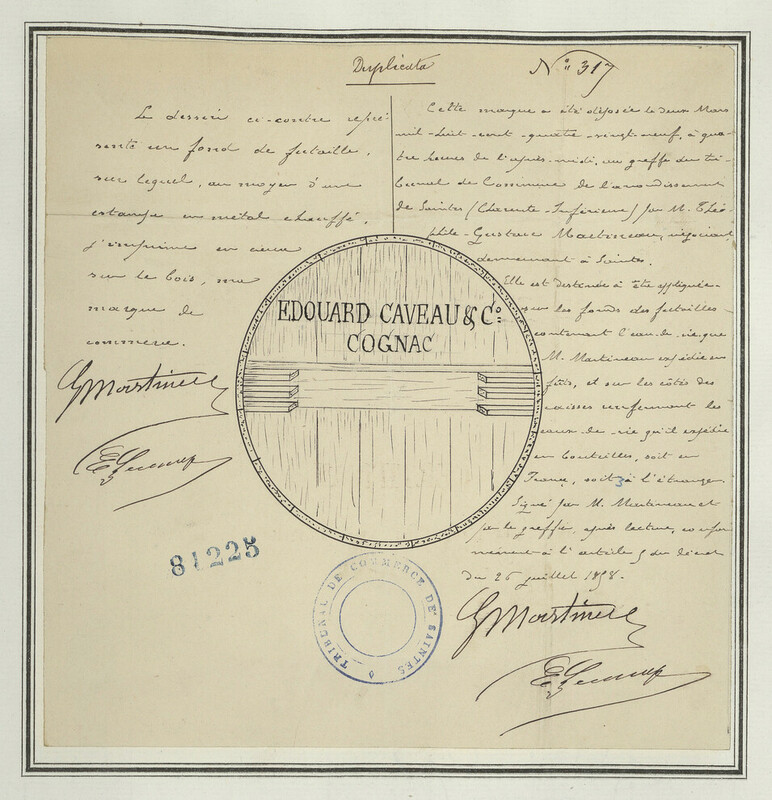 Duplicata
N° 317
Le dessin ci-contre repré-
sente un fond de futaille,
sur lequel, au moyen d'une
estampe en métal chauffé,
j'imprime en creux
sur le bois, ma
marque de
commerce.
GMartineau
Cette marque a été déposée le deux Mars
mil-huit-cent-quatre-vingt-neuf, à qua-
tre heures de l'après-midi, au greffe du tri-
bunal de Commerce de l'arrondissement
de Saintes (Charente-Inférieure) par M. Théo-
phile-Gustave Martineau, négociant,
demeurant à Saintes.
Elle est destinée à être appliquée
sur les fonds des futailles
contenant l'eau-de-vie que
M. Martineau expédie en
fûts, et sur les côtés des
caisses renfermant les
eaux-de-vie qu'il expédie
en bouteilles, soit en
France, soit à l'étranger.
Signé par M. Martineau et
par le greffier, après lecture, confor-
mément à l'article 5 du décret
du 26 juillet 1858.
GMartineau
EDOUARD CAVEAU & Cie
COGNAC
81225
TRIBUNAL DE COMMERCE DE SAINTES